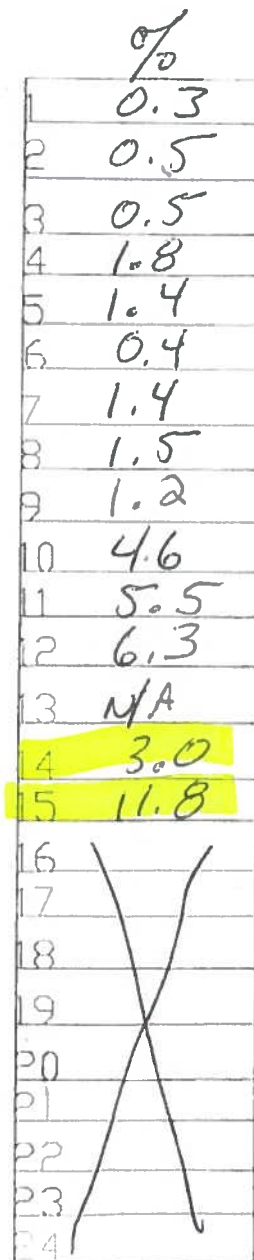 %
1 0.3
2 0.5
3 0.5
4 1.8
5 1.4
6 0.4
7 1.4
8 1.5
9 1.2
10 4.6
11 5.5
12 6.3
13 N/A
14 3.0
15 11.8
16
17
18
19
20
21
22
23
24